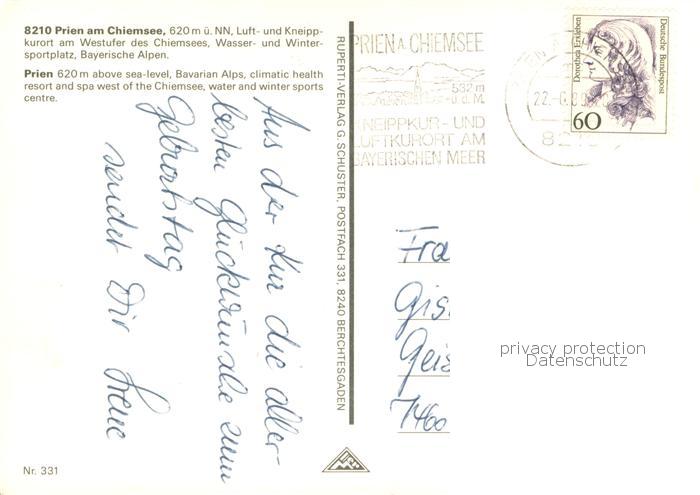 8210 Prien am Chiemsee, 620 m ü. NN, Luft- und Kneipp-
kurort am Westufer des Chiemsees, Wasser- und Winter-
sportplatz, Bayerische Alpen.
Prien 620 m above sea-level, Bavarian Alps, climatic health
resort and spa west of the Chiemsee, water and winter sports
centre.
Aus der Kur die aller-
besten Glückwünsche zum
Geburtstag
sendet Dir Irene
Nr. 331
RUPERTI-VERLAG G. SCHUSTER, POSTFACH 331, 8240 BERCHTESGADEN
PRIEN A. CHIEMSEE
532 m
ü.d.M.
KNEIPPKUR- UND
LUFTKURORT AM
BAYERISCHEN MEER
22.-6.8
821
Dorothea Erxleben
Deutsche Bundespost
60
Fra
Gis
Geis
7460
privacy protection
Datenschutz